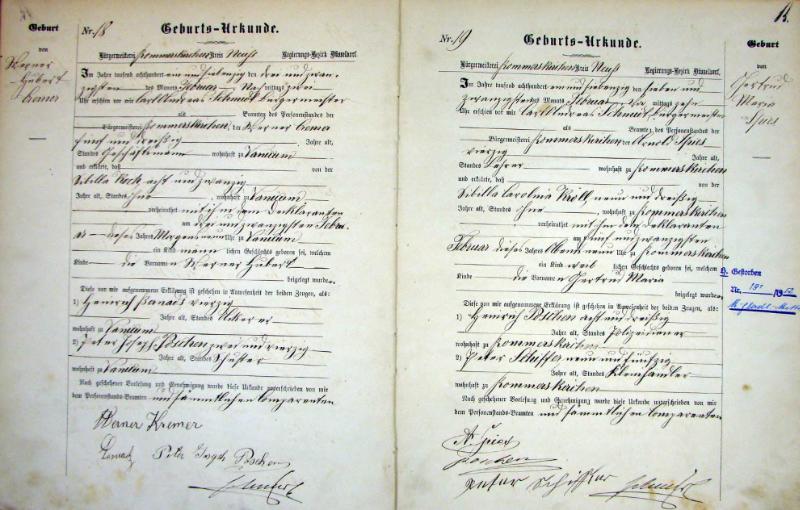 Geburt
von
Werner
Hubert
Cremer
Nr. 18
Geburts-Urkunde.
Bürgermeisterei Rommerskirchen Kreis Neuß Regierungs-Bezirk Düsseldorf.
Im Jahre tausend achthundert ein und siebenzig den drei und zwan-
zigsten des Monats Februar Nachmittags zwei
Uhr erschien vor mir Carl Andreas Schmidt Bürgermeister
als Beamten des Personenstandes der
Bürgermeisterei Rommerskirchen, der Werner
fünf und dreißig Jahre alt,
Standes wohnhaft zu Vanikum
und erklärte, daß von der
Sibilla Koch acht und zwanzig
Jahre alt, Standes ohne wohnhaft zu Vanikum
verheirathet mit ihm dem Deklaranten
am drei und zwanzigsten Febru-
ar dieses Jahres Morgens neun Uhr zu Vanikum
ein Kind männlichen Geschlechts geboren sei, welchem
Kinde die Vornamen Werner Hubert
beigelegt wurden.
Diese von mir aufgenommene Erklärung ist geschehen in Anwesenheit der beiden Zeugen, als:
1) Heinrich vierzig
Jahre alt, Standes Ackerer
wohnhaft zu Vanikum
2) Peter Joseph Pöschen zwei und vierzig
Jahre alt, Standes Schuster
wohnhaft zu Vanikum
Nach geschehener Vorlesung und Genehmigung wurde diese Urkunde unterschrieben von mir
dem Personenstands-Beamten und sämmtlichen Comparenten
Werner Kremer
Peter Joseph Pöschen
Schmidt
Nr. 19
Geburts-Urkunde.
Bürgermeisterei Rommerskirchen Kreis Neuß Regierungs-Bezirk Düsseldorf.
Im Jahre tausend achthundert ein und siebenzig den sieben und
zwanzigsten des Monats Februar mittags zehn
Uhr erschien vor mir Carl Andreas Schmidt Bürgermeister
als Beamten des Personenstandes der
Bürgermeisterei Rommerskirchen, der Arnold Spies
vierzig Jahre alt,
Standes Lehrer wohnhaft zu Rommerskirchen
und erklärte, daß von der
Sibilla Carolina Kröll, neun und dreißig
Jahre alt, Standes ohne wohnhaft zu Rommerskirchen
verheirathet mit ihm dem Deklaranten
am fünf und zwanzigsten
Februar dieses Jahres Abends neun Uhr zu Rommerskirchen
ein Kind weiblichen Geschlechts geboren sei, welchem
Kinde die Vornamen Gertrud Maria
beigelegt wurden
Diese von mir aufgenommene Erklärung ist geschehen in Anwesenheit der beiden Zeugen, als:
1) Heinrich Pöschen acht und dreißig
Jahre alt, Standes Polizeidiener
wohnhaft zu Rommerskirchen
2) Peter Schiffer neun und fünfzig
Jahre alt, Standes Kleinhändler
wohnhaft zu Rommerskirchen
Nach geschehener Vorlesung und Genehmigung wurde diese Urkunde unterschrieben von mir
dem Personenstands-Beamten und sämmtlichen Comparenten
A. Spies
Pöschen
Peter Schiffer
Schmidt
Geburt
von
Gertrud
Maria
Spies
Gestorben
Nr.